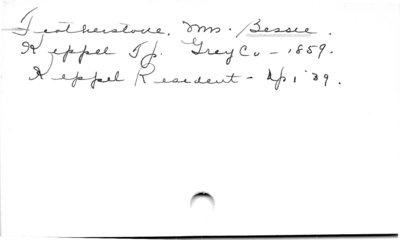 Featherstone, Mrs. Bessie.
Keppel Tp. Grey Co - 1859.
Keppel Resident - Ap 1 '39.